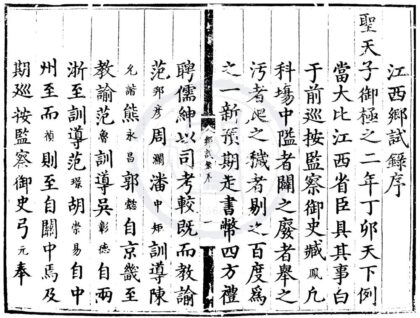 江西鄉試錄序
聖天子御極之二年丁卯天下例
當大比江西省臣具其事白
于前巡按監察御史臧鳳凡
科場中隘者闢之廢者舉之
汚者爬之穢者剔之百度為
之一新預期走書幣四方禮
聘儒紳以司考較既而教諭
范邦彥周瀾潘中矩訓導陳
允諧熊永昌郭懿自京畿至
教諭范魯訓導吳彰德自兩
浙至訓導范胡崇易自中
州至而禎則至自關中焉及
期巡按監察御史弓元奉